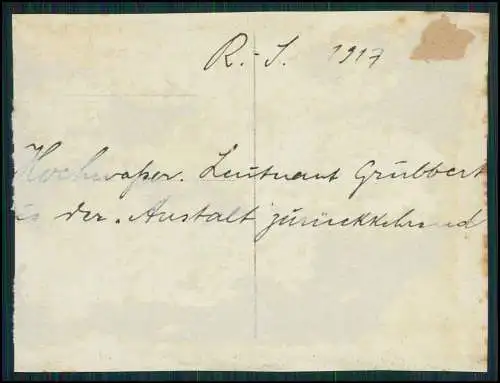 R.-S. 1917
Hochwasser. Leutnant Grubbert
us der "Anstalt zurückkehrend